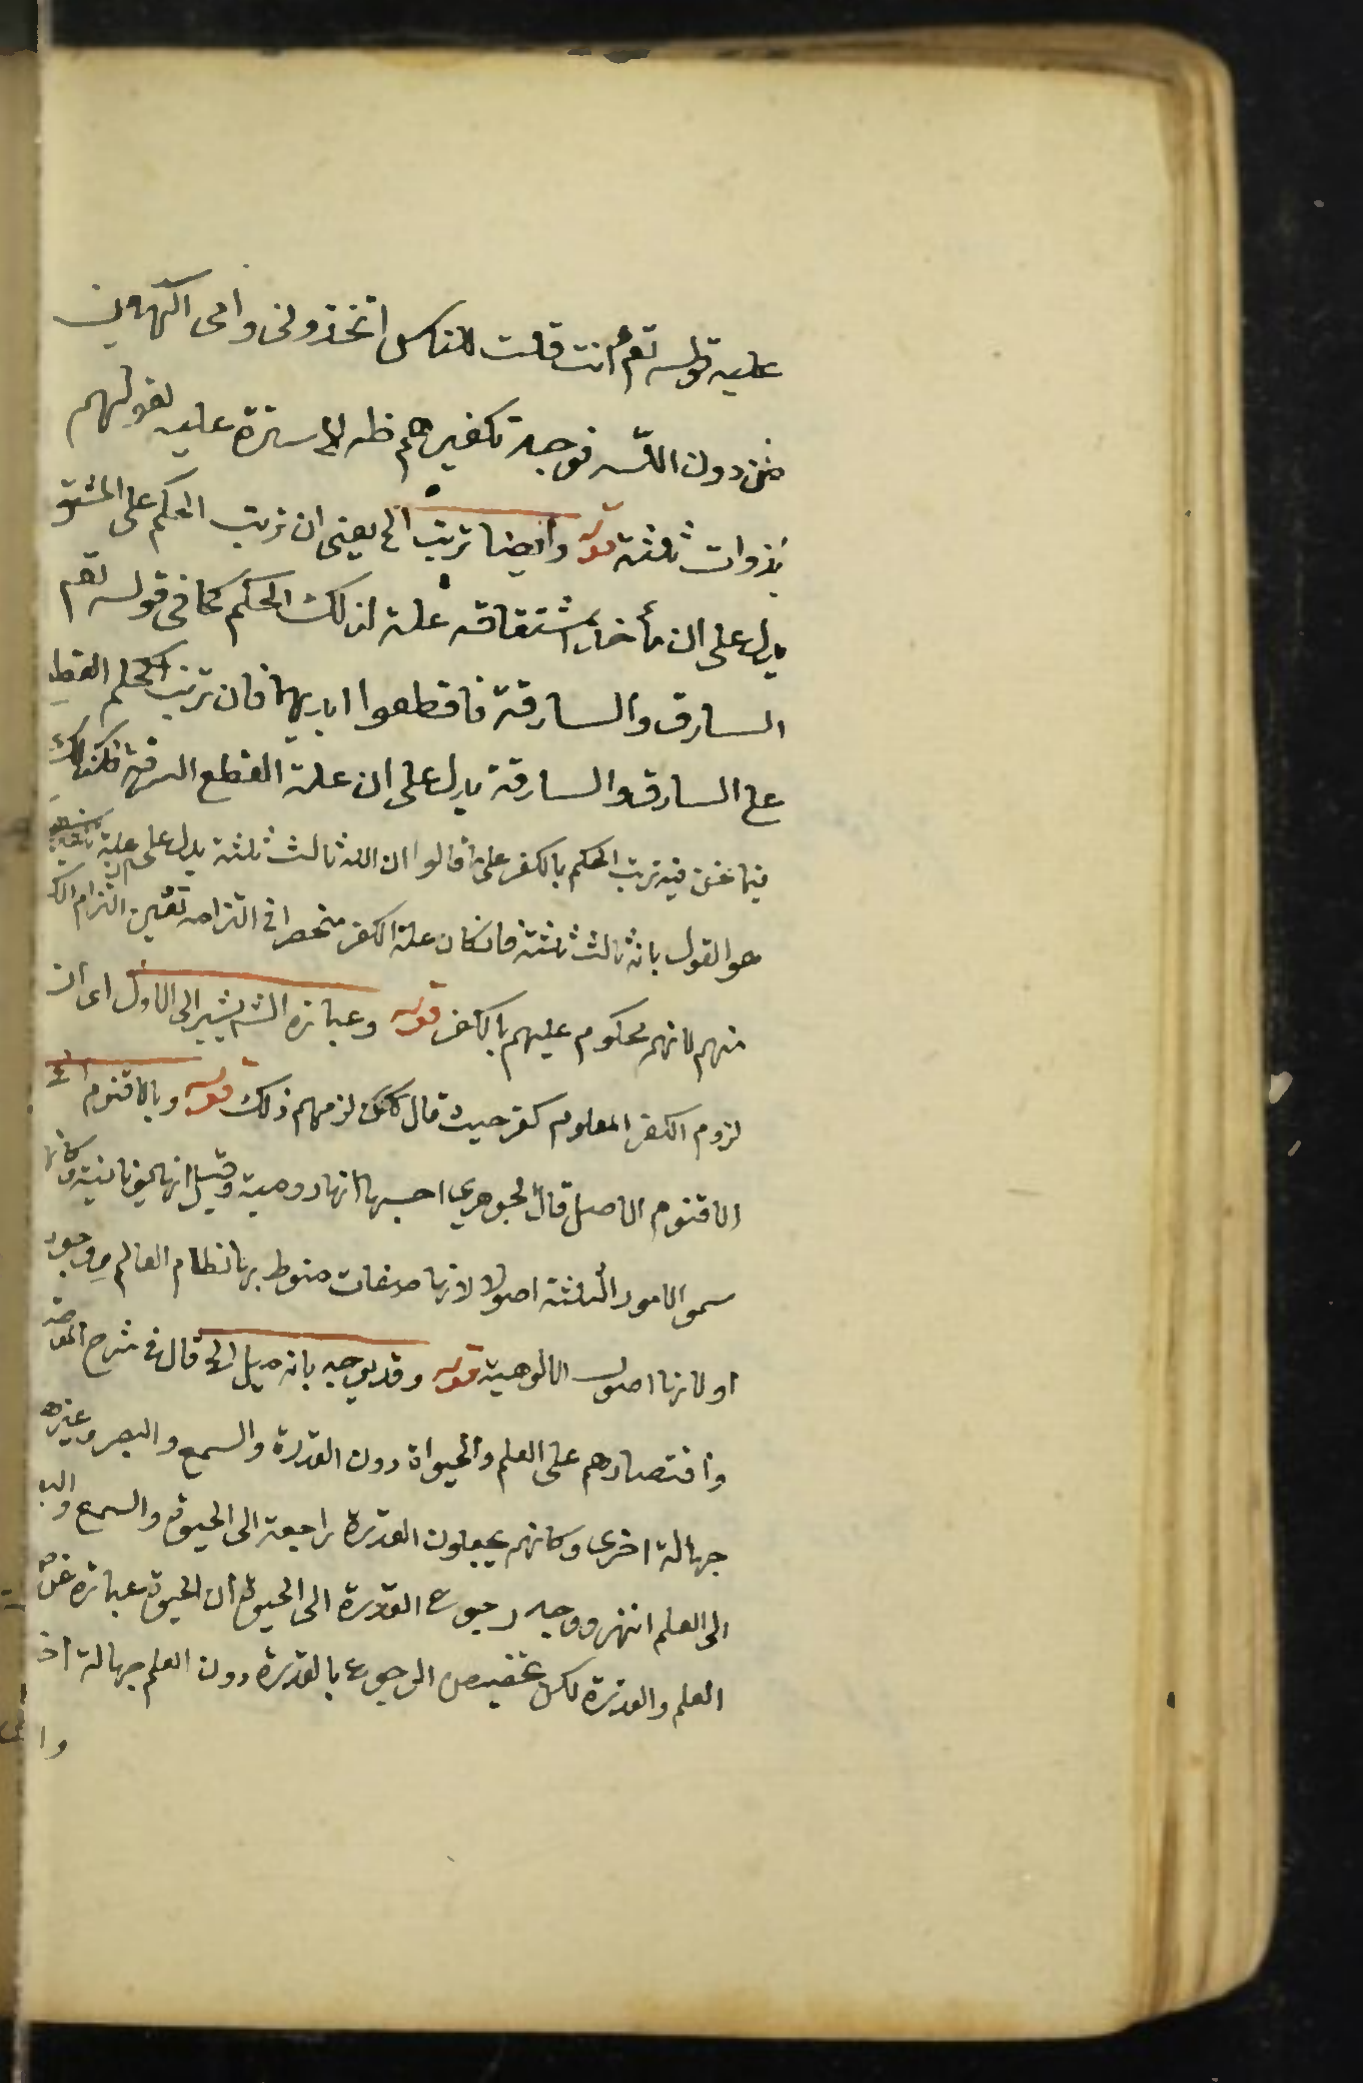 عليه قوله تعم أانت قلت للناس اتخذونی وامی الٓهین
من دون اللّٰه فوجه تكفيرهم ظه لا سترة عليه لقولهم
بذوات ثلثة قوله وأيضا ترتب الخ يعنى ان ترتب الحكم على المشتق
يدل على ان مأخذ اشتقاقه علة لذلك الحكم كما فى قوله تعم
السارق والسارقة فاقطعوا ايديهما فان ترتب الحكم القطع
على السارق والسارقة يدل على ان علة القطع السرقة فكذلك
فيما نحن فيه ترتب الحكم بالكفر على قالوا ان الله ثالث ثلثة يدل على ان علة
هو القول بانه ثالث ثلثة فان كان علة الكفر منحصرا فى التزامه تعين التزام الكفر
منهم لانهم محكوم عليهم بالكفر قوله وعبارة الشم يشير الى الاول اى ان
لزوم الكفر المعلوم كفر حيث قال لكن لزمهم ذلك قوله وبالاقنوم الخ
الاقنوم الاصل قال الجوهري احسبها انها رومية وقيل انها يونانية وكانها
سموا الامور الثلثة اصولا لانها صفات منوط بها نظام العالم ووجود
او لانها اصول الالوهية قوله وقد يوجه بانه ميل الخ قال فى شرح المواقف
واقتصارهم على العلم والحيواة دون القدرة والسمع والبصر وغيرها
جهالة اخرى وكانهم يجعلون القدرة راجعة الى الحيوة والسمع والب
الى العلم انتهى ووجه رجوع القدرة الى الحيوة ان الحيوة عبارة عن
العلم والقدرة لكن تخصيص الرجوع بالقدرة دون العلم جهالة اخ
وا